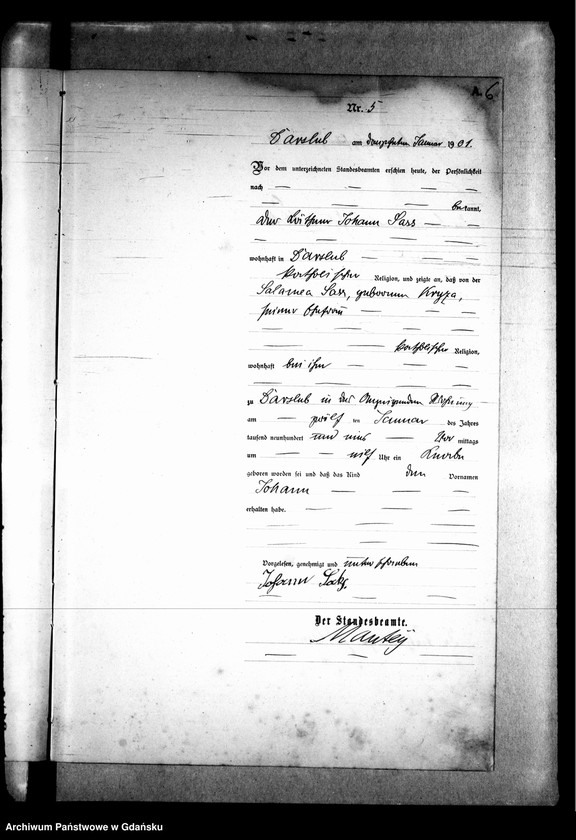 A. 6
Nr. 5
Darslub am dreizehnten Januar 1901.
Vor dem unterzeichneten Standesbeamten erschien heute, der Persönlichkeit
nach
bekannt,
der Johann Sass
wohnhaft in Darslub
katholischer Religion, und zeigte an, daß von der
Salomea Sass, geborenen Kryza,
seiner Ehefrau
katholischer Religion,
wohnhaft bei ihm
zu Darslub in der Wohnung
am zwölf ten Januar des Jahres
tausend neunhundert und eins Vor mittags
um elf Uhr ein Knabe
geboren worden sei und daß das Kind den Vornamen
Johann
erhalten habe.
Vorgelesen, genehmigt und unterschrieben
Johann
Der Standesbeamte.
Manteÿ
Archiwum Państwowe w Gdańsku